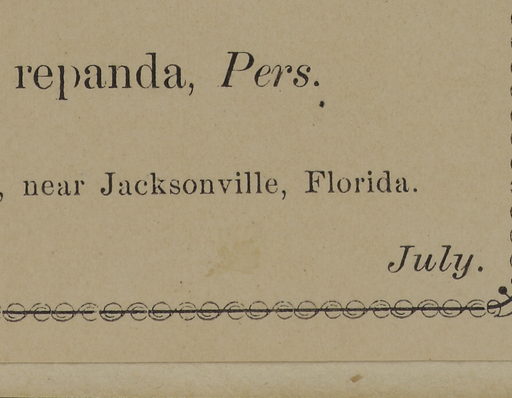 repanda, Pers.
, near Jacksonville, Florida.
July.